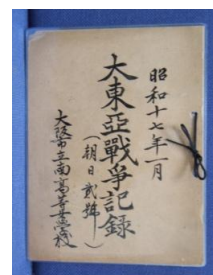 昭和十七年一月
大東亞戰爭記録
(朝日貳號)
大阪市立南高等女學校